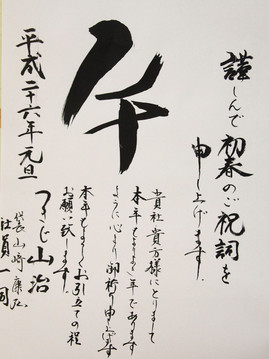 謹しんで初春のご祝詞を
申し上げます。
午
貴社貴方様にとりまして
本年もよき年であります
ように心より御祈り申し上げます
本年もよろしくお引立ての程
お願い致します。
平成二十六年元旦
つきじ山治
代表 山﨑康弘
社員一同